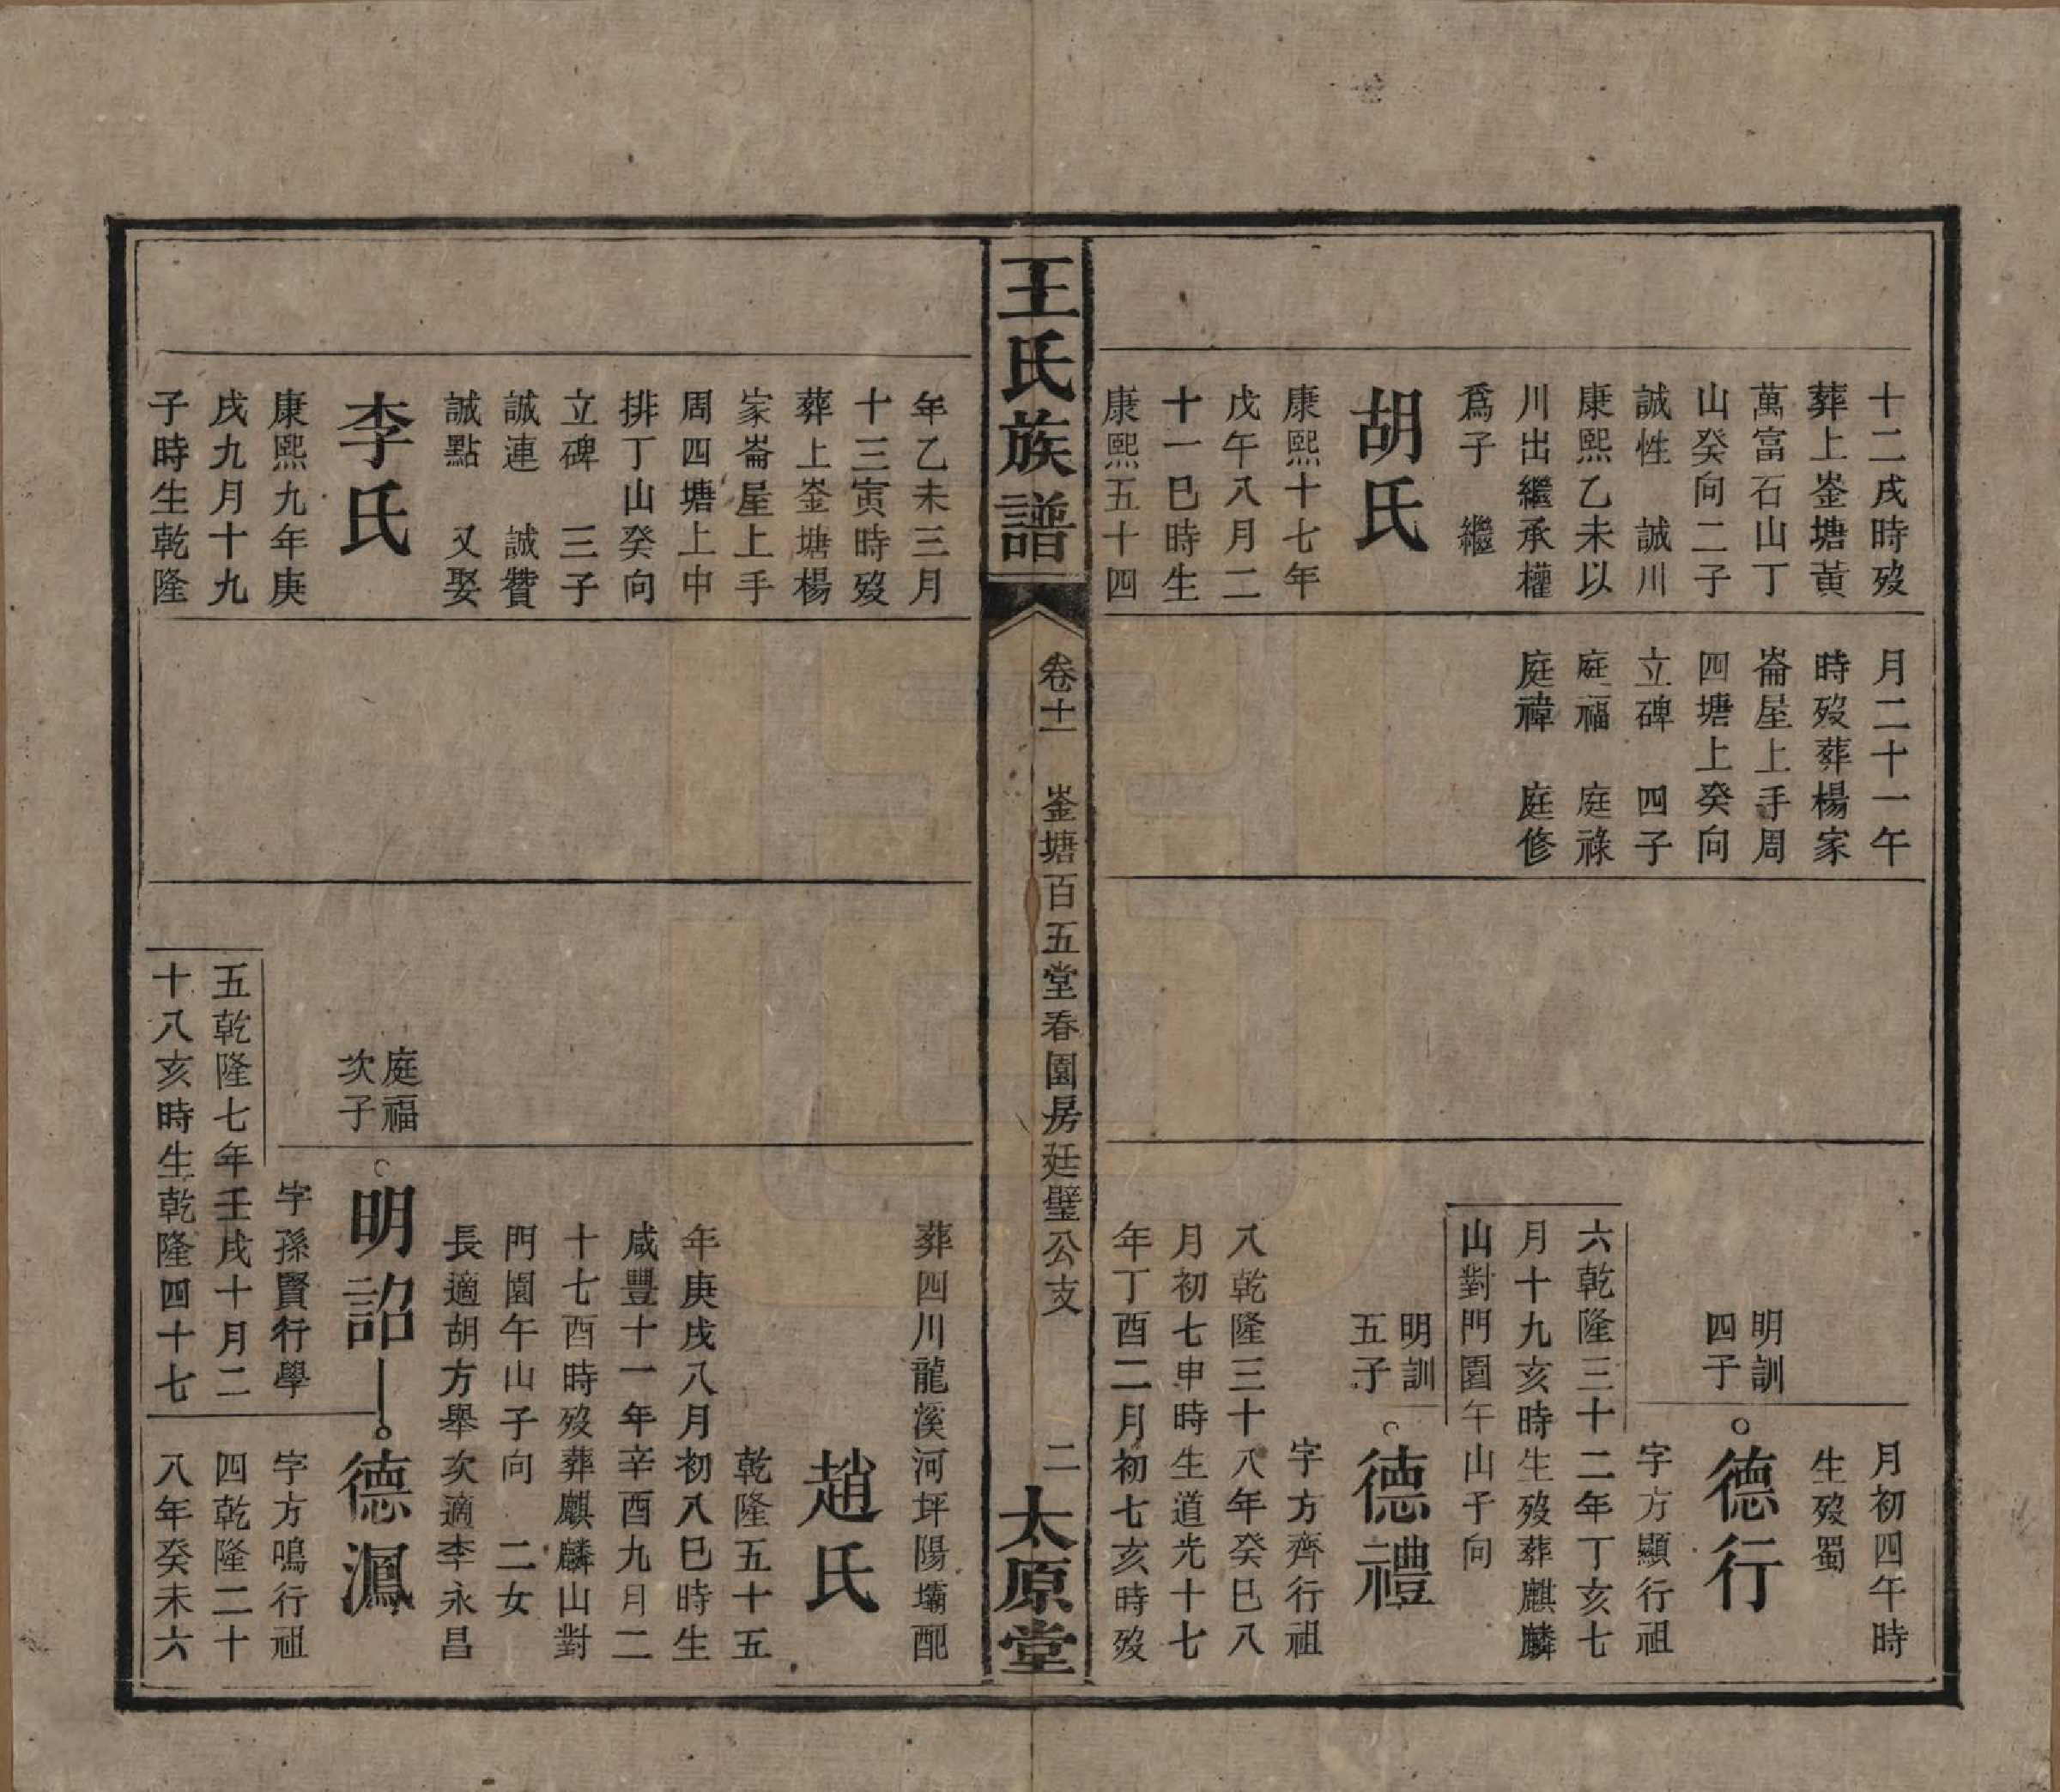 十二戌時歿
葬上崟塘黃
萬富石山丁
山癸向二子
誠性　誠川
康熙乙未以
川出繼承權
爲子　繼
胡氏
康熙十七年
戊午八月二
十一巳時生
康熙五十四
月二十一午
時歿葬楊家
崙屋上手周
四塘上癸向
立碑　四子
庭福　庭祿
庭禕　庭修
月初四午時
生歿蜀
明訓
四子
德行
字方顯行祖
六乾隆三十二年丁亥七
月十九亥時生歿葬麒麟
山對門園午山子向
明訓
五子
德禮
字方齊行祖
八乾隆三十八年癸巳八
月初七申時生道光十七
年丁酉二月初七亥時歿
王氏族譜
卷十一　崟塘百五堂春園房廷璧公支
二
太原堂
年乙未三月
十三寅時歿
葬上崟塘楊
家崙屋上手
周四塘上中
排丁山癸向
立碑　三子
誠連　誠贊
誠點　又娶
李氏
康熙九年庚
戌九月十九
子時生乾隆
葬四川龍溪河坪陽壩配
趙氏
乾隆五十五
年庚戌八月初八巳時生
咸豐十一年辛酉九月二
十七酉時歿葬麒麟山對
門園午山子向　二女
長適胡方舉次適李永昌
庭福
次子
明詔
德鳯
字孫賢行學
五乾隆七年壬戌十月二
十八亥時生乾隆四十七
字方鳴行祖
四乾隆二十
八年癸未六